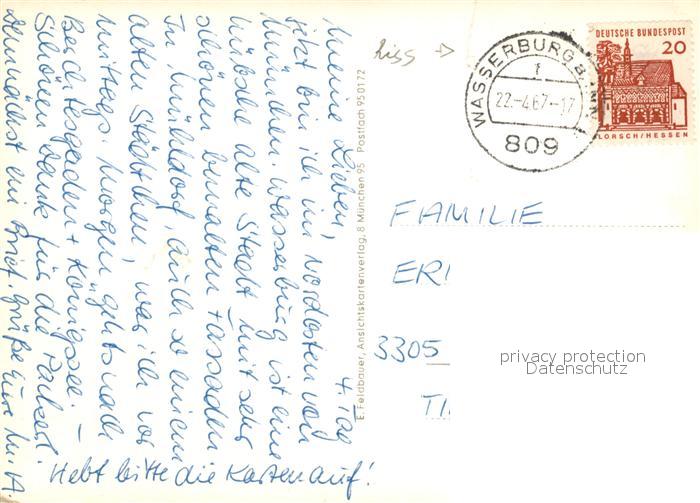 4. Tag
Meine Lieben,
jetzt bin ich im Nordosten von
München. Wasserburg ist eine
hübsche alte Stadt mit sehr
schönen bemalten Fassaden
In Mühldorf, auch so einem
alten Städtchen, war ich vor
mittags. Morgen geht's nach
Berchtesgaden + Königssee. –
Schönen Dank für die Packerl
Demnächst ein Brief. Grüße Eure
Hebt bitte die Karten auf!
E. Feldbauer, Ansichtskartenverlag, 8 München 95 Postfach 950172
Riss
WASSERBURG a. INN 1
f
22.-4.67.-17
809
DEUTSCHE BUNDESPOST
20
LORSCH/HESSEN
FAMILIE
ER
3305
TI
privacy protection
Datenschutz